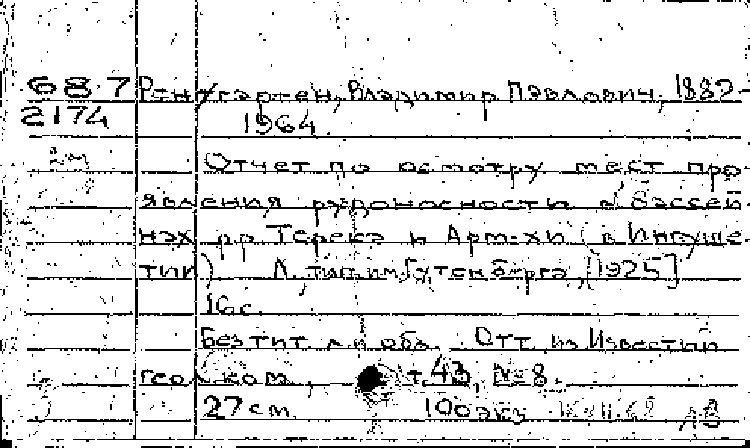 68.7 Ренгартен, Владимир Павлович, 1882-
2174 1964.
Отчет по осмотру мест про-
явления рудоносности в бассей-
нах рр. Терека и Арм-хи (в Ингуше-
тии) Л., тип. им. Гутенберга, [1925]
16 с.
Без тит. л. и обл. Отт. из Известий
геол. ком., т. 43, № 8.
27 см. 100 экз.